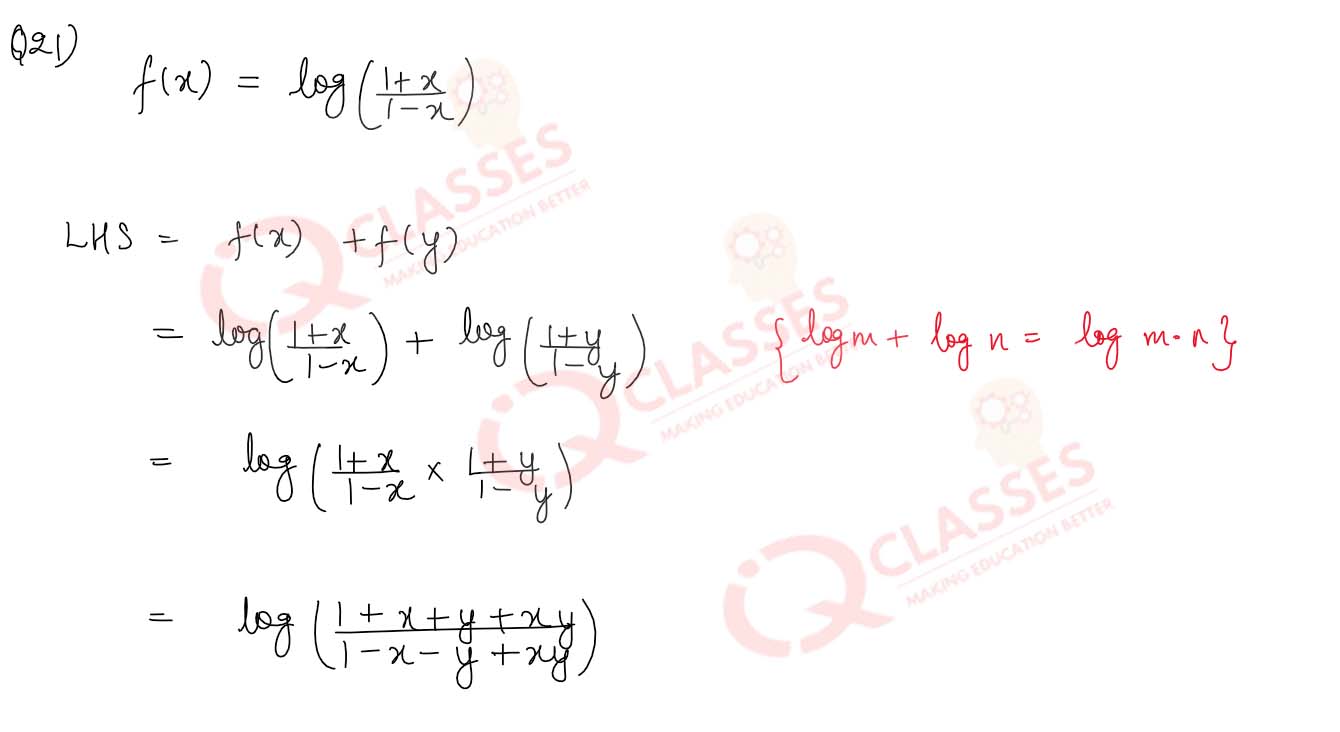 Q21)
f(x) = log(1+x/1-x)
LHS = f(x) + f(y)
= log(1+x/1-x) + log(1+y/1-y) {log m + log n = log m·n}
= log(1+x/1-x × 1+y/1-y)
= log(1+x+y+xy/1-x-y+xy)
CLASSES
MAKING EDUCATION BETTER
CLASSES
MAKING EDUCATION BETTER
CLASSES
MAKING EDUCATION BETTER